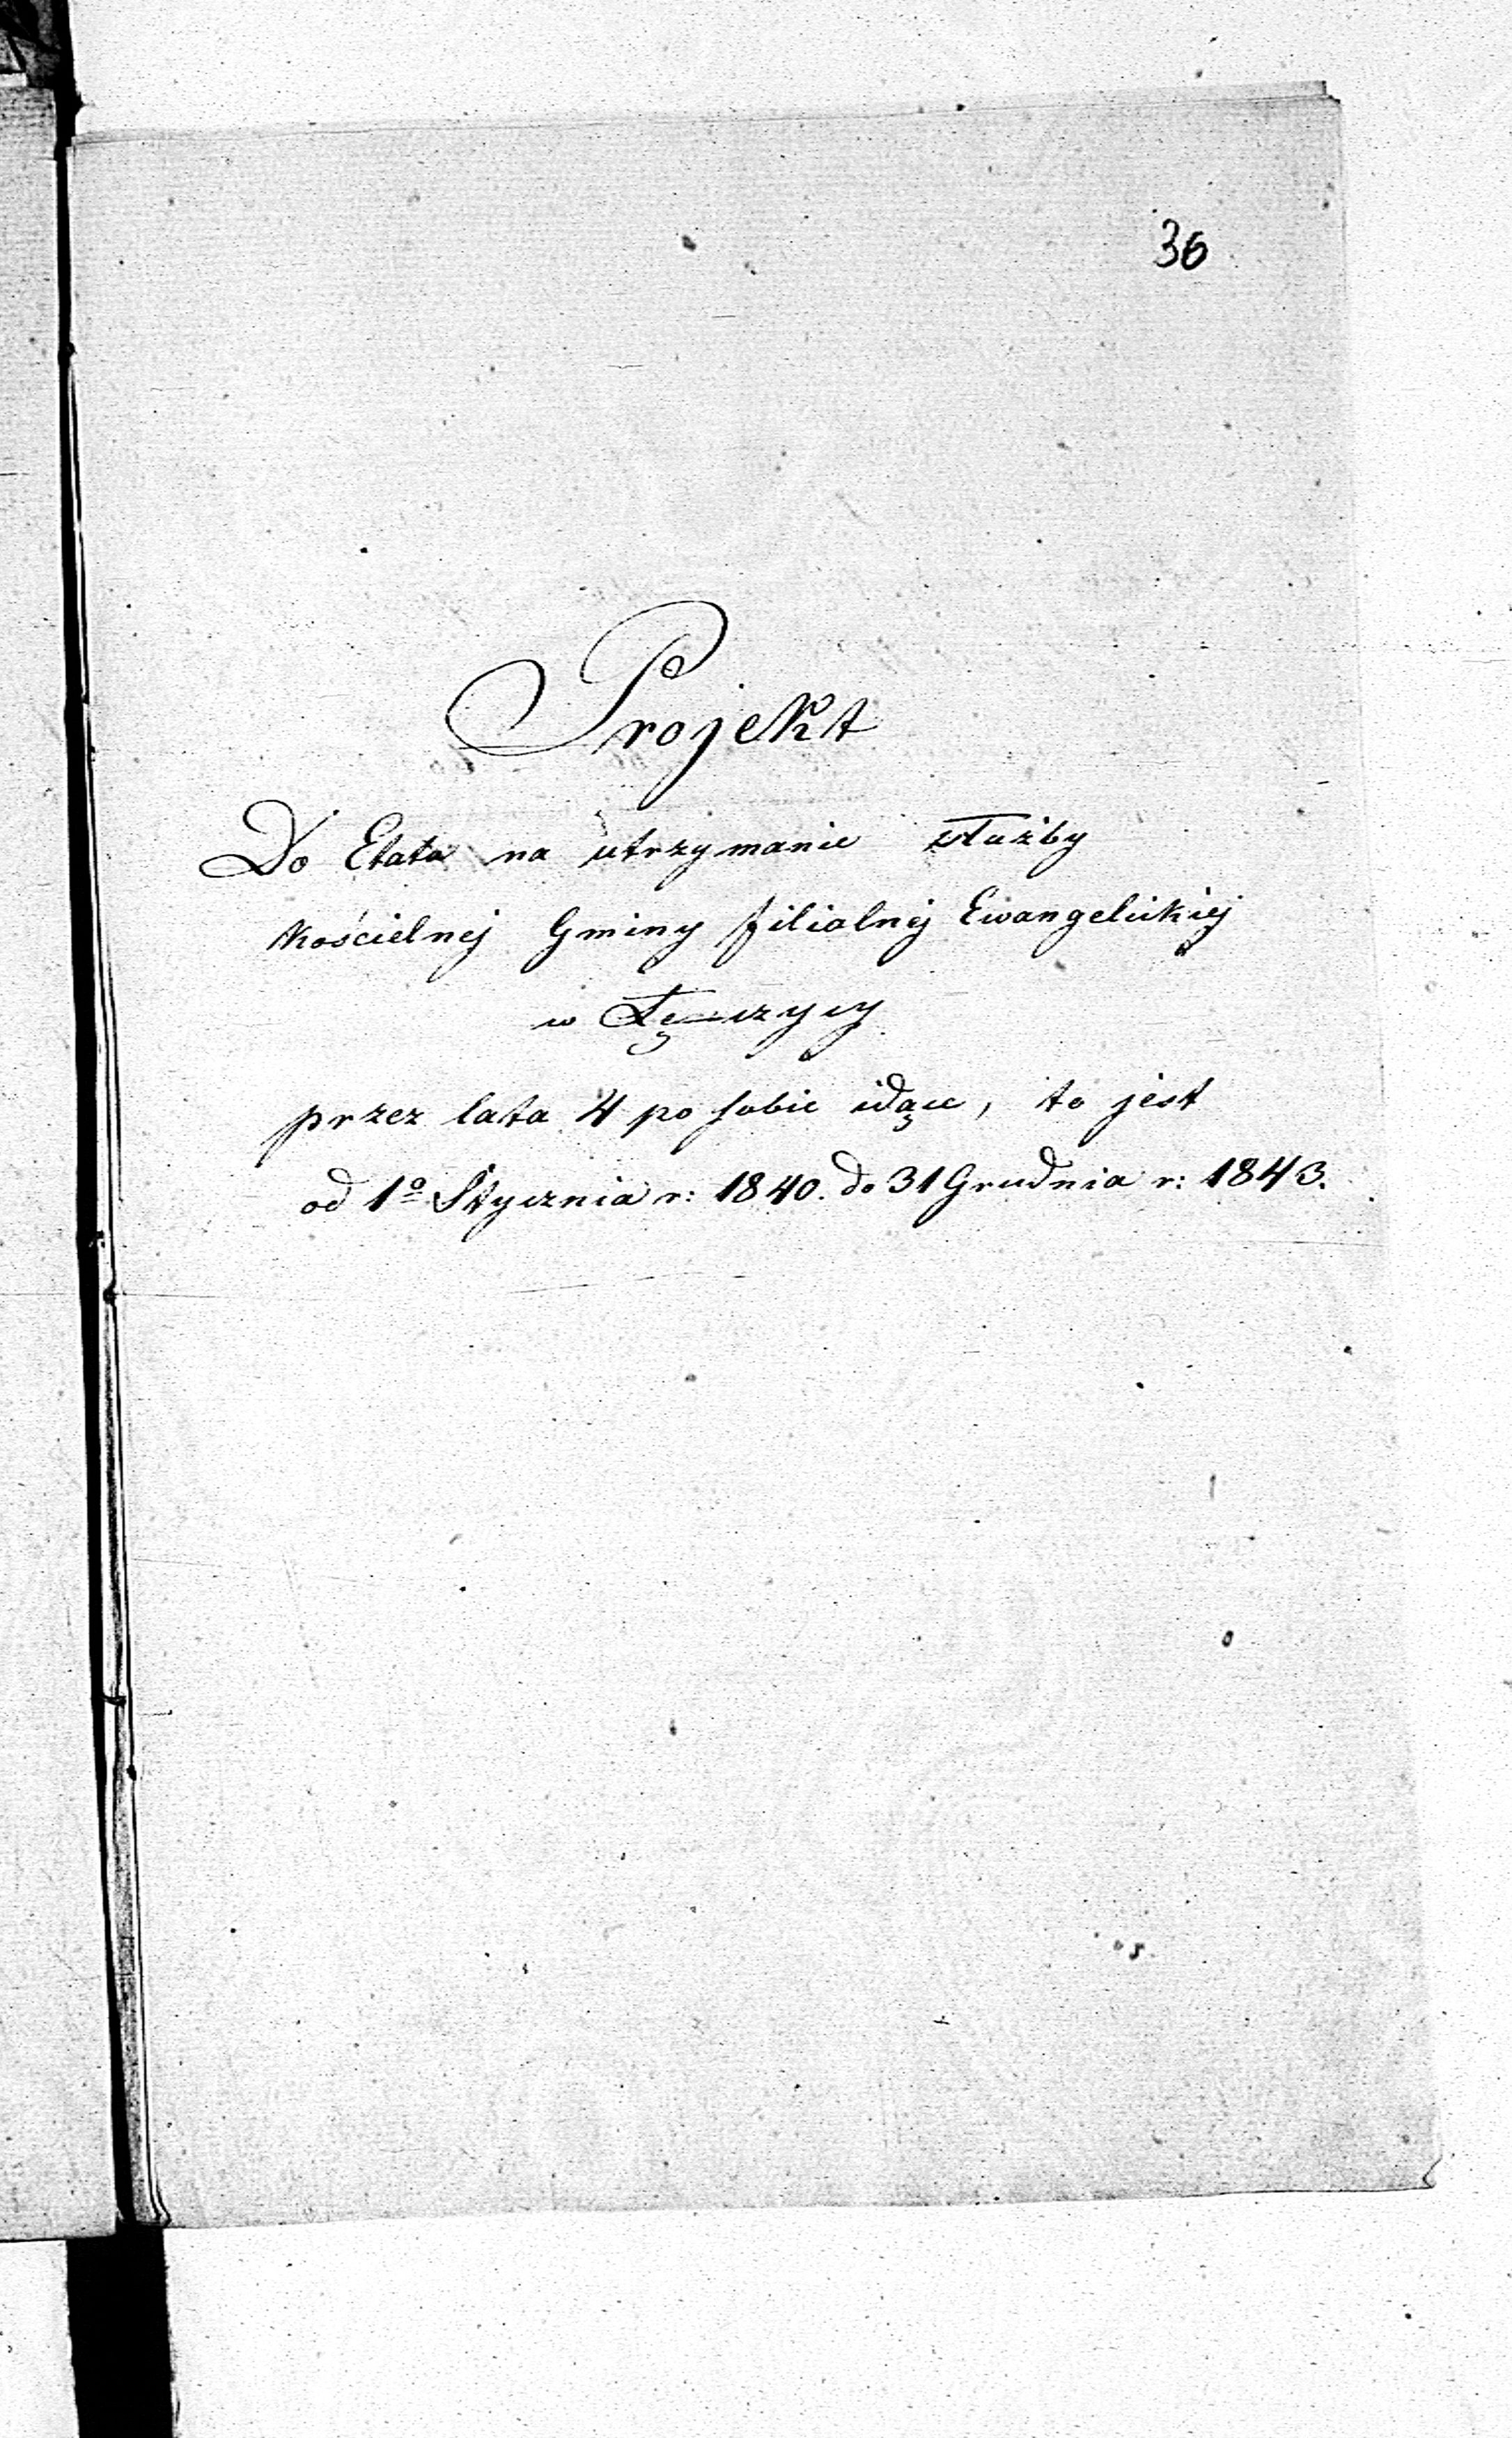 36
Projekt
Do Etatu na utrzymanie służby
kościelnej Gminy filialnéj Ewangelickiéj
w Łęczycy
przez lata 4 po sobie idące, to jest
od 1º Stycznia r: 1840. do 31 Grudnia r: 1843.